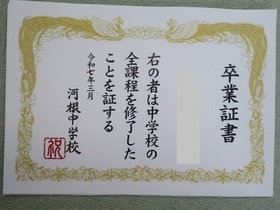 卒業証書
右の者は中学校の
全課程を修了した
ことを証する
令和七年三月
河根中学校
祝